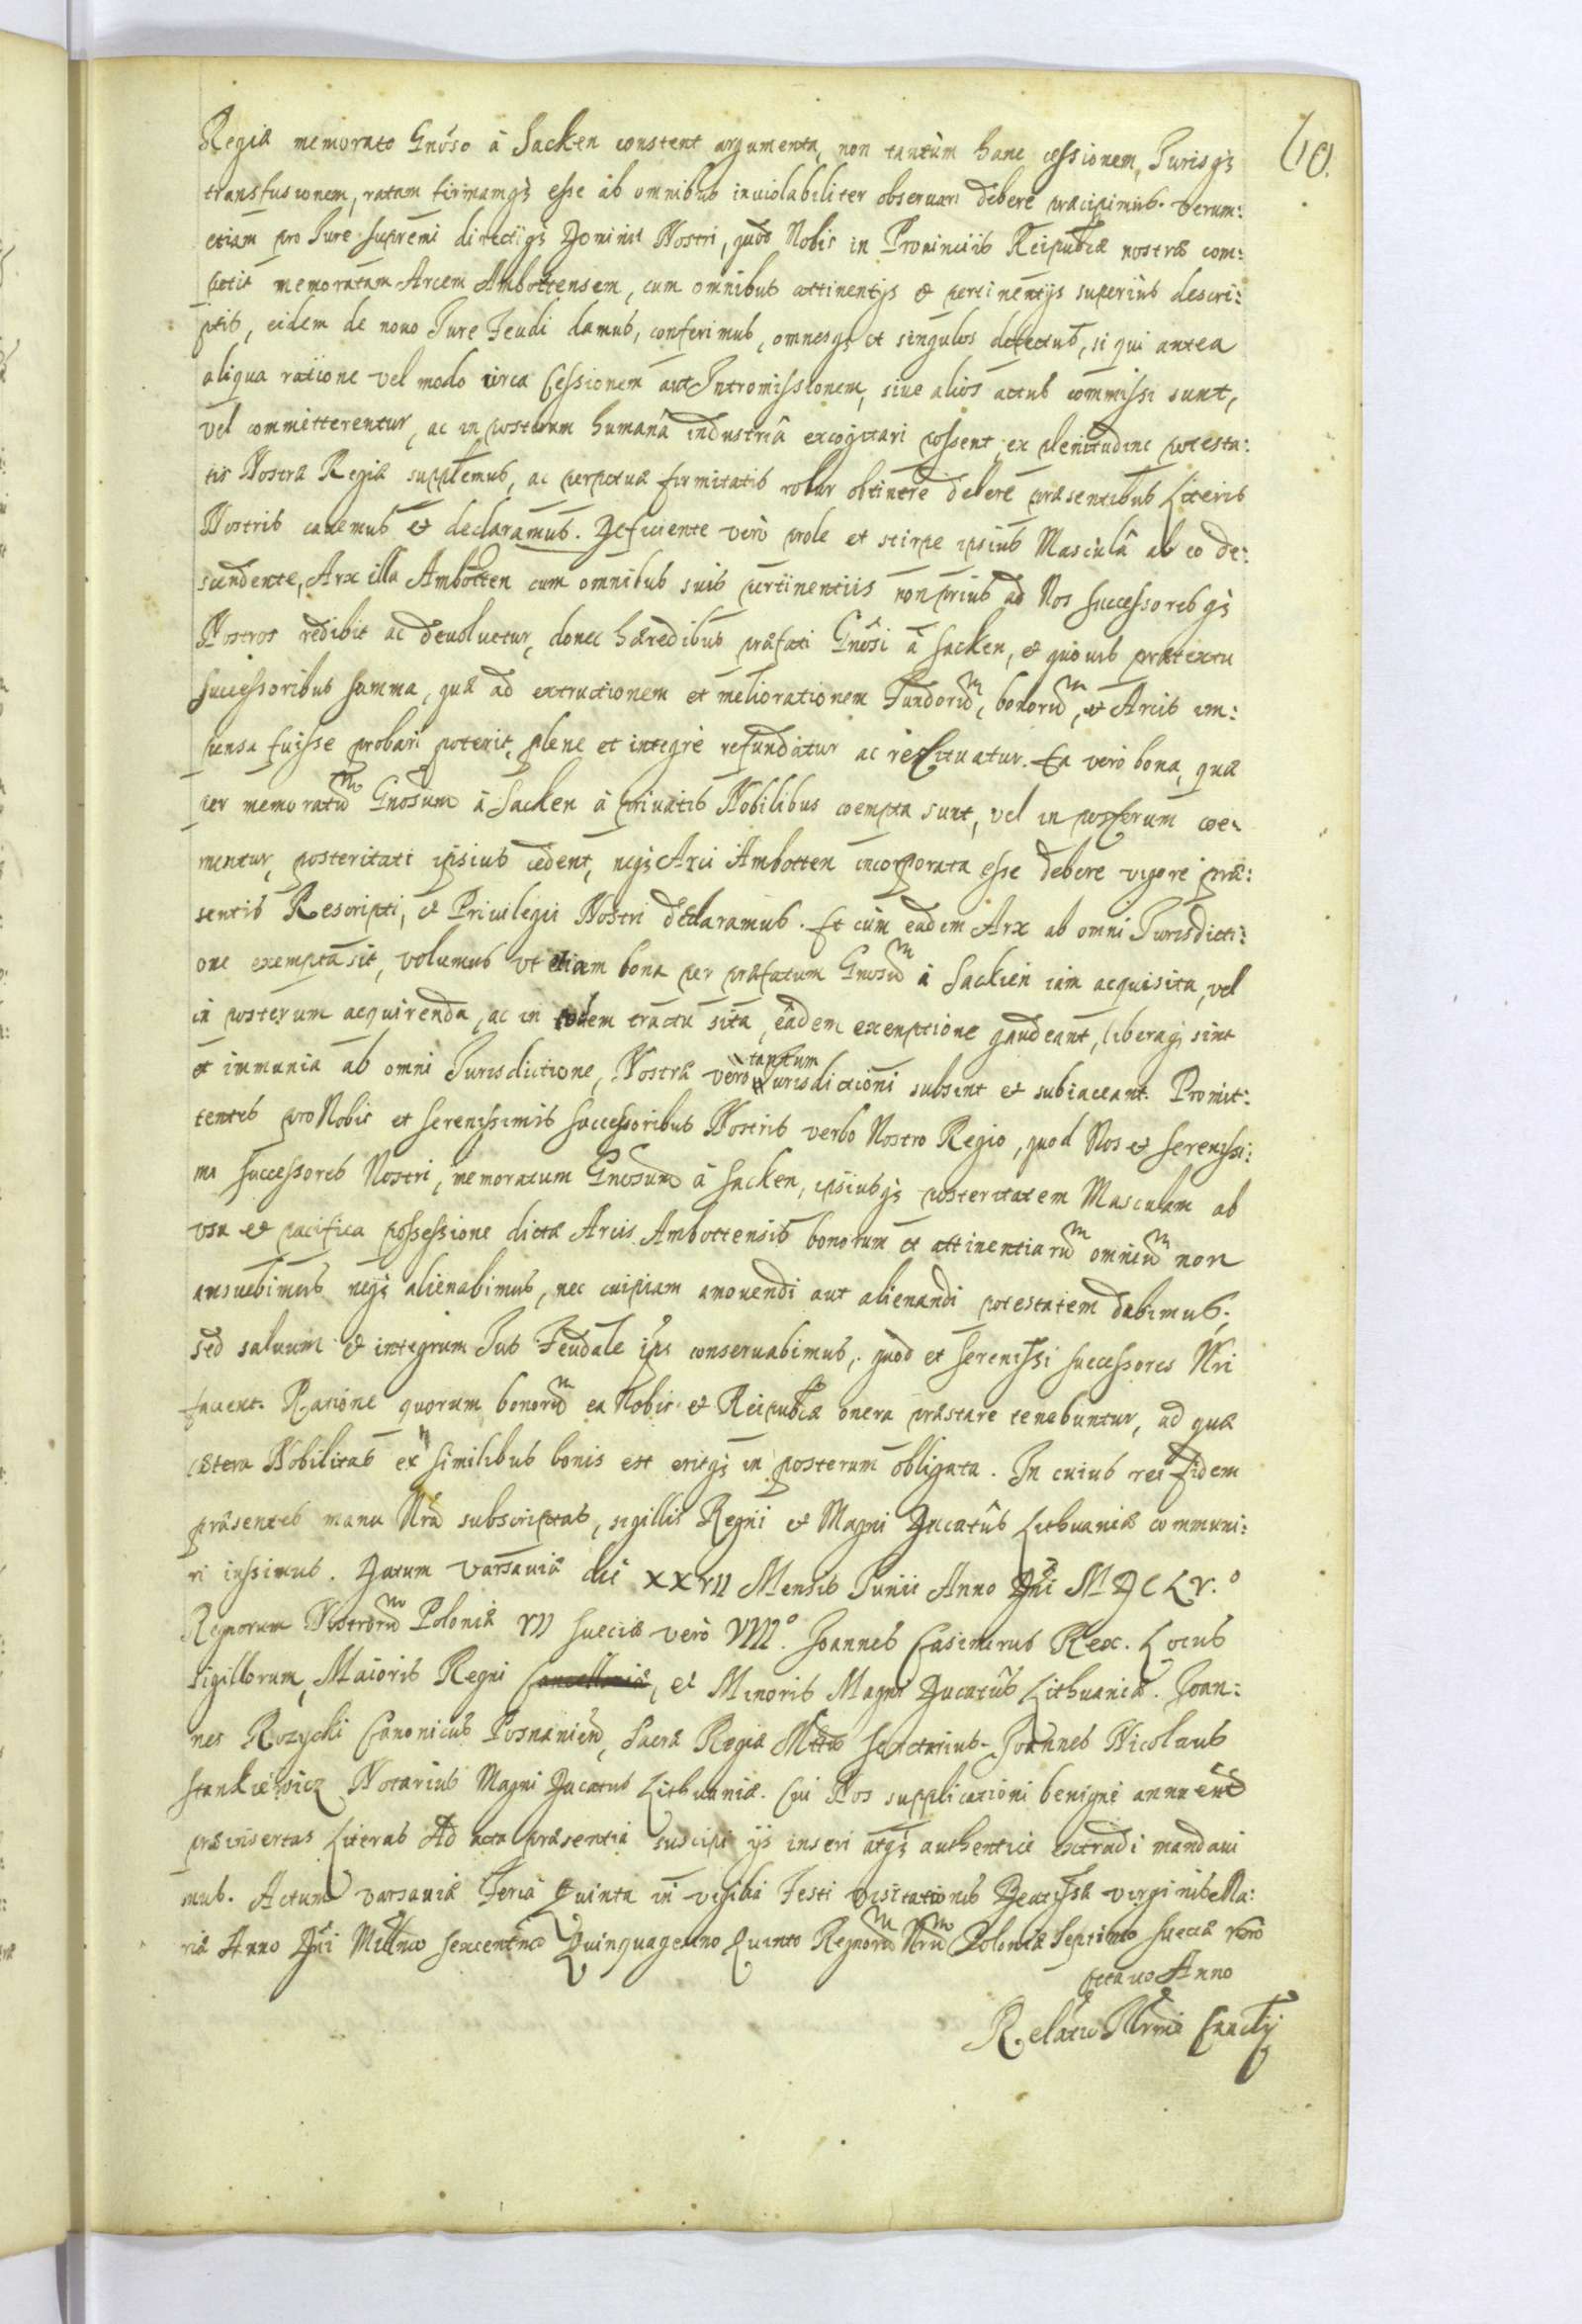 60.
Regiæ memorato Gnoso à Sacken constent argumenta, non tantùm hanc cessionem, Jurisq;
transfusionem, ratam firmamq; esse ab omnibus inviolabiliter observari debere præcipimus. verum:
etiam pro Jure supremi directiq; Dominii Nostri, quod Nobis in Provinciis Reipublicæ nostræ com:
petit memoratam Arcem Ambottensem, cum omnibus attinentijs & pertinentijs superiùs descri:
ptis, eidem de nouo Jure Feudi damus, conferimus, omnesq; et singulos defectus, si qui antea
aliqua ratione vel modo circa Cessionem aut Intromissionem, siue alios actus commissi sunt,
vel committerentur, ac in posterum humanâ industriâ excogitari possent, ex plenitudine potesta:
tis Nostræ Regiæ supplemus, ac perpetuæ firmitatis robur obtinere debere præsentibus Literis
Nostris cauemus & declaramus. Deficiente verò prole et stirpe ipsius Masculâ ab eo de:
scendente, Arx illa Ambotten cum omnibus suis pertinentiis non prius ad Nos Successoresq;
Nostros redibit ac deuoluetur, donec hæredibus præfati Gnosi à Sacken, & quouis prætextu
Successoribus summa, quæ ad extructionem et meliorationem Fundorum, bonorum, & Arcis im:
pensa fuisse probari poterit, plene et integrè refundatur ac restituatur. Ea verò bona, quæ
per memoratum Gnosum à Sacken à privatis Nobilibus coempta sunt, vel in posterum coe:
mentur, posteritati ipsius cedent, neq; Arci Ambotten incorporata esse debere vigore præ:
sentis Rescripti, & Priuilegii Nostri declaramus. Et cùm eadem Arx ab omni Jurisdicti:
one exempta sit, volumus vt etiam bona per præfatum Gnosum à Sacken iam acquisita, vel
in posterum acquirenda, ac in eodem tractu sita, eâdem exemptione gaudeant, liberaq; sint
et immunia ab omni Jurisdictione, Nostræ verò tantum Jurisdictioni subsint et subiaceant. Promit:
tentes pro Nobis et Serenissimis Successoribus Nostris verbo Nostro Regio, quod Nos & Serenissi:
mi Successores Nostri, memoratum Gnosum à Sacken, ipsiusq; posteritatem Masculam ab
vsu & pacifica possessione dictæ Arcis Ambottensis bonorum et attinentiarum omnium non
amouebimus neq; alienabimus, nec cuipiam amouendi aut alienandi potestatem dabimus,
sed saluum & integrum Jus Feudale ipsi conseruabimus, quod et Serenissi Successores Nri
facient. Ratione quorum bonorum ea Nobis & Reipublicæ onera præstare tenebuntur, ad quæ
cætera Nobilitas ex similibus bonis est eritq; in posterum obligata. In cuius rei fidem
præsentes manu Nrâ subscriptas, sigillis Regni & Magni Ducatûs Lithuaniæ communi:
ri iussimus. Datum Varsauiæ die XXVII Mensis Junii Anno Dni MDCLV.o
Regnorum Nostrorum Poloniæ VII Sueciæ verò VIII.o Joannes Casimirus Rex. Locus
Sigillorum, Maioris Regni Cancellariæ, et Minoris Magni Ducatûs Lithuaniæ. Joan:
nes Rozycki Canonicus Posnanien, Sacræ Regiæ Mttis Secretarius. Joannes Nicolaus
Stankiewicz Notarius Magni Ducatus Lithuaniæ. Cui Nos supplicationi benignè annuend
præinsertas Literas Ad acta præsentia suscipi ijs inseri atq; authenticè extradi mandaui
mus. Actum Varsauiæ Feria Quinta in vigilia Festi Visitationis Beatissæ Virginis Ma:
riæ Anno Dni Millmo Sexcentmo Quinquagesimo Quinto Regnorum Nrum Poloniæ Septimo Sueciæ vero
octauo Anno
Relatio